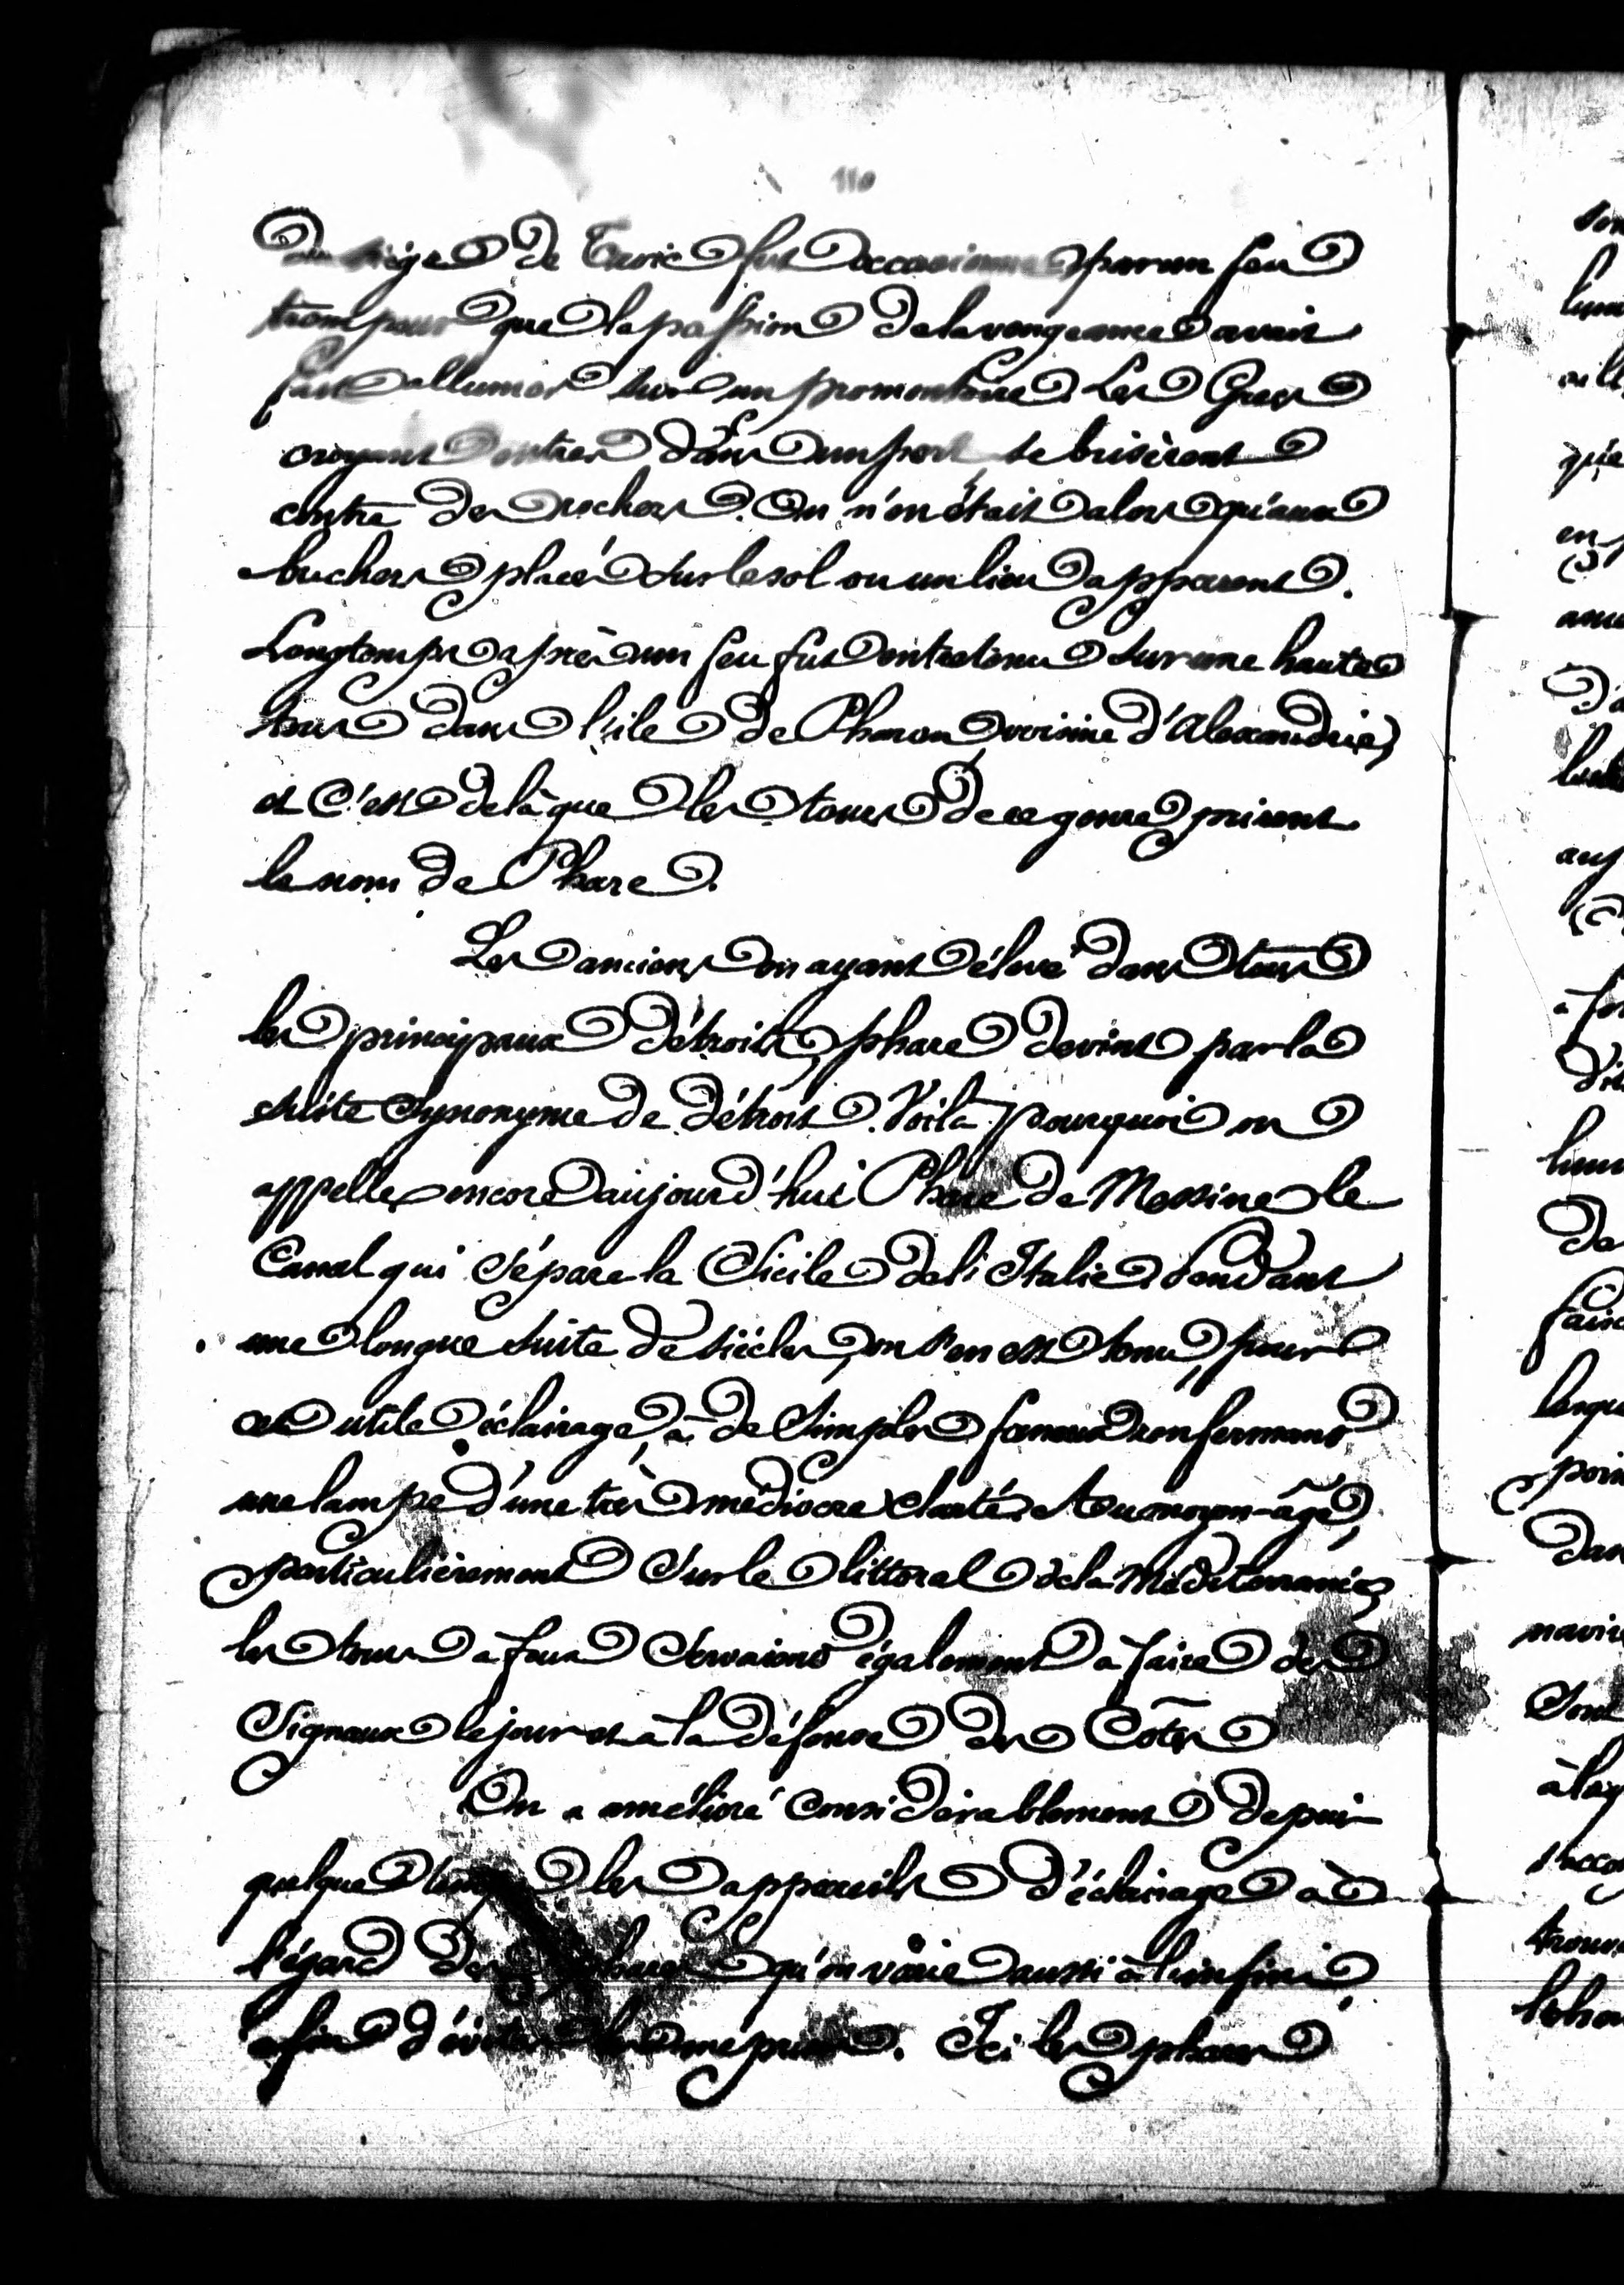 110
du siége de Troie fut occasionné par un feu
trompeur que la passion de la vengeance avait
fait allumer sur un promontoire. Les Grecs
croyant entrer dans un port se brisèrent
contre des rochers. On n'en était alors qu'aux
buchers placé sur le sol ou un lieu apparent.
Longtemps après un feu fut entretenu sur une haute
tour dans l'ile de Pharon voisine d'Alexandrie,
et c'est delà que les tours de ce genre prirent
le nom de Phare.
Les anciens en ayant élevé dans tous
les principaux détroits, phare devint par la
suite synonyme de détroit. Voilà pourquoi on
appelle encore aujourd'hui Phare de Messine le
Canal qui sépare la Sicile de l'Italie. Pendant
une longue suite de siècles, on s'en est tenu, pour
cet utile éclairage, à de simples fanaux renfermant
une lampe d'une très médiocre clarté. Au moyen-âge,
particulièrement sur le littoral de la Méditerranée,
les tours à feux servaient également à faire des
signaux le jour et à la défense des Côtes
On a amélioré considérablement depuis
quelque temps les appareils d'éclairage à
l'égard des phares qu'on varie aussi à l'infini,
afin d'éviter les méprises. Ici les phares